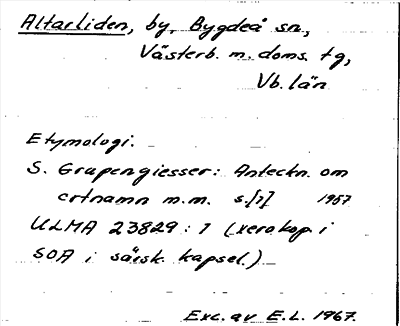 Altarliden, by, Bygdeå sn,
Västerb. m. doms. tg,
Vb. län
Etymologi.
S. Grapengiesser: Anteckn. om
ortnamn m.m. s.[1] 1957
ULMA 23829:1 (xerokop. i
SOA i särsk. kapsel.)
Exc. av E.L. 1967.